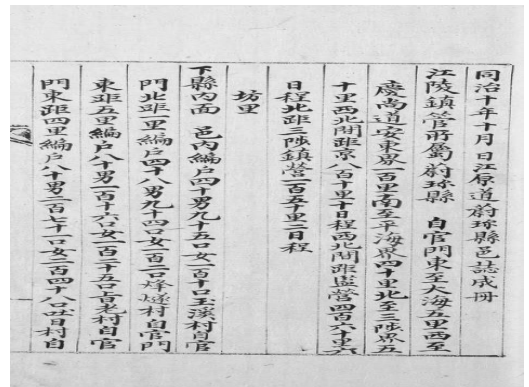 同治十年十月 日江原道蔚珍縣邑誌成冊
江陵鎮管所屬蔚珍縣 自官門東至大海五里西至
慶尚道安東界一百里南至平海界四十里北至三陟界五
十里西北間距京八百十里十日程西北間距監營四百六十里六
日程北距三陟鎮營一百五十里二日程
坊里
下縣內面 邑內編戶四十男九十五口女一百十口玉溪村自官
門北距一里編戶四十八男九十四口女一百二口烽燧村自官門
東距五里編戶八十男一百十六口女一百二十五口古老村自官
門東距四里編戶八十男一百七十一口女一百四十八口世日村自